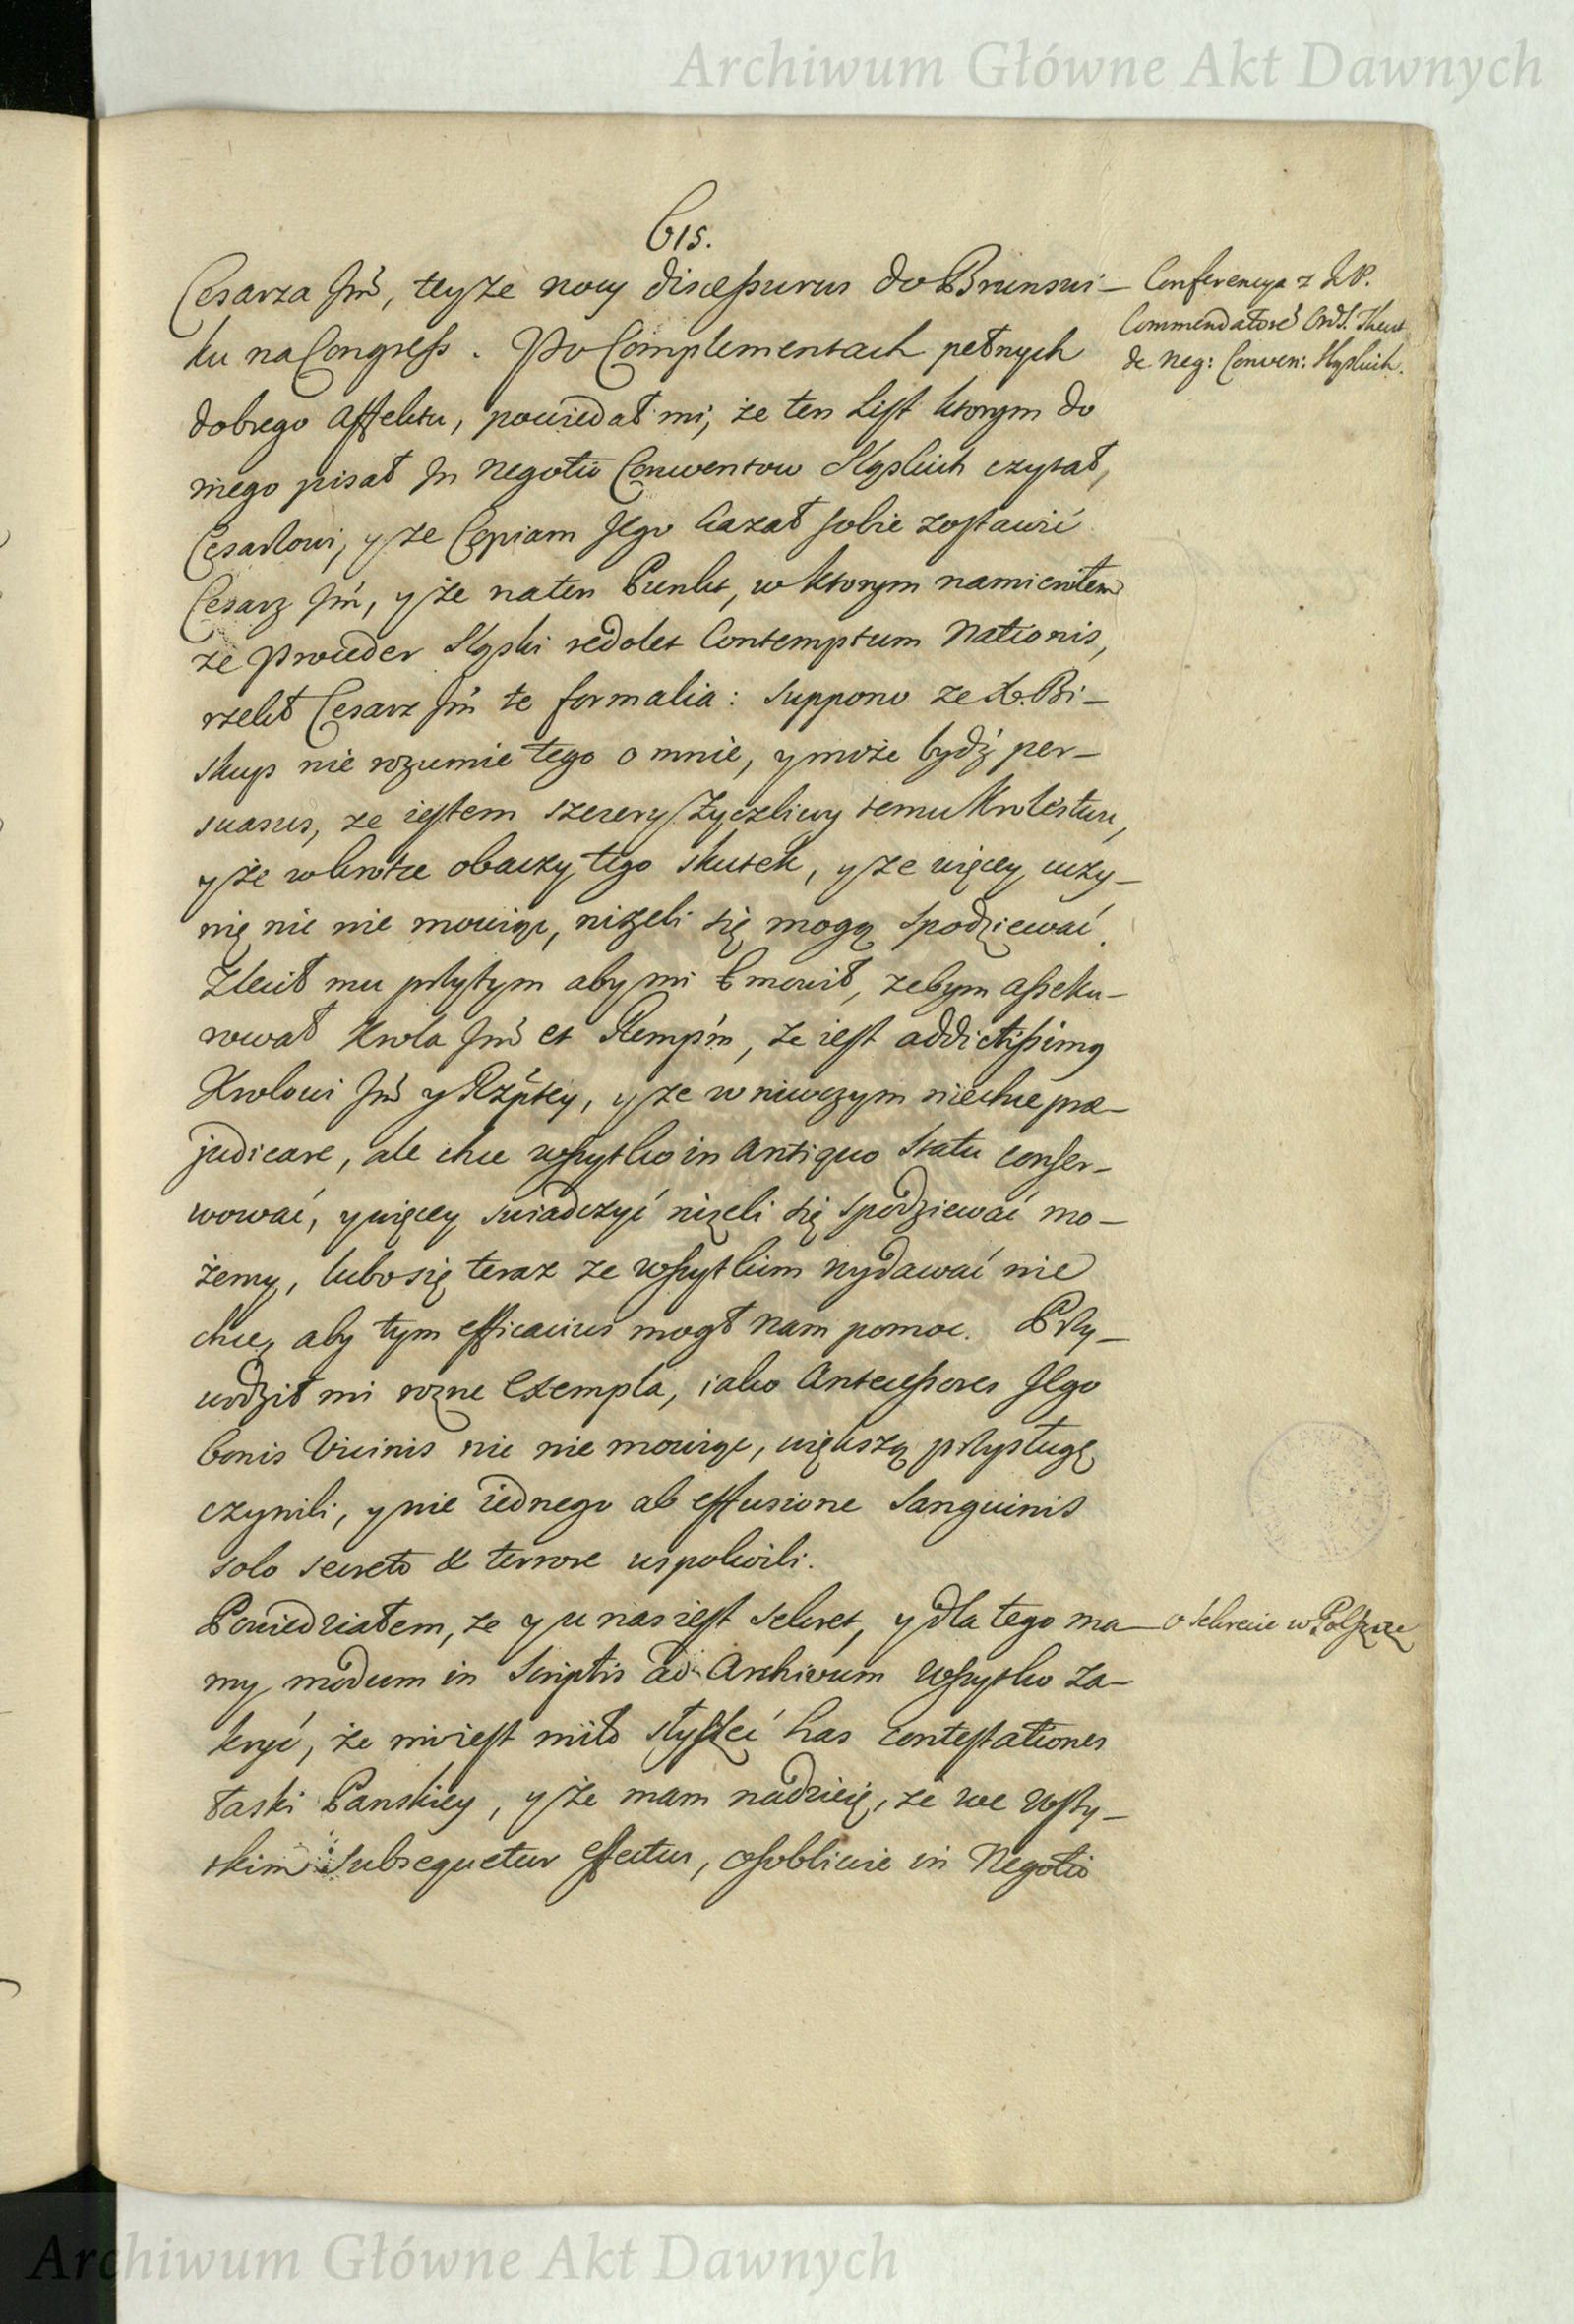 Archiwum Główne Akt Dawnych
615.
Cesarza Jm̃, teyże nocy discessurus do Brunswi-
ku na Congress. Po Complementach pełnych
dobrego affektu, powiedał mi, że ten List ktorym do
niego pisał In Negotio Conwentow Sląskich czytał,
Cesarzowi, y ze Copiam Jego kazał sobie zostawić
Cesarz Jm̃, y że na ten Punkt, w ktorym namieniłem
że Proceder Sląski redolet Contemptum Nationis,
rzekł Cesarz Jm̃ te formalia: Suppono ze X. Bi-
skup nie rozumie tego o mnie, y może bydź per-
suasus, ze iestem szczery Zyczliwy temu Krolestwu,
y że wkrotce obaczy tego skutek, y ze więcey uczy-
nię nic nie mowiąc, niżeli się mogą spodziewać.
Zlecił mu przytym aby mi mowił, zebym asseku-
rował Krola Jm̃ et Rempm̃, że iest addictissimg
Krolowi Jm̃ y Rzptey, y ze w niwczym niechce præ-
judicare, ale chce wszytko in Antiquo Statu conser-
wować, y więcey swiadczyć niżeli się spodziewać mo-
żemy, lubo się teraz ze wszytkim wydawać nie
chce, aby tym efficacius mogł nam pomoc. Przy-
wodził mi rozne Exempla, iako Antecessores Jego
bonis Vicinis nic nie mowiąc, większą przysługę
czynili, y nie iednego ab effusione Sanguinis
solo secreto & terrore uspokoili.
Powiedziałem, ze y u nas iest sekret, y dla tego ma-
my modum in Scriptis ad Archivum wszytko za-
kryć, że mi iest miło słyszeć has contestationes
łaski Panskiey, y że mam nadzieię, że we wszy-
skim subsequetur effectus, osobliwie in Negotio
Conferencya z J.P.
Commendatorẽ Ord. Theut.
de Neg: Conven: Sląskich.
o sekrecie w Polszcze
Archiwum Główne Akt Dawnych